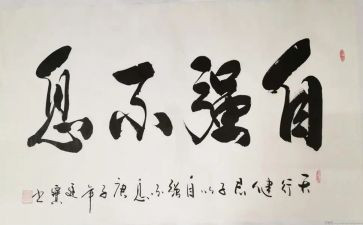 自强不息
天行健君子以自强不息庚子年